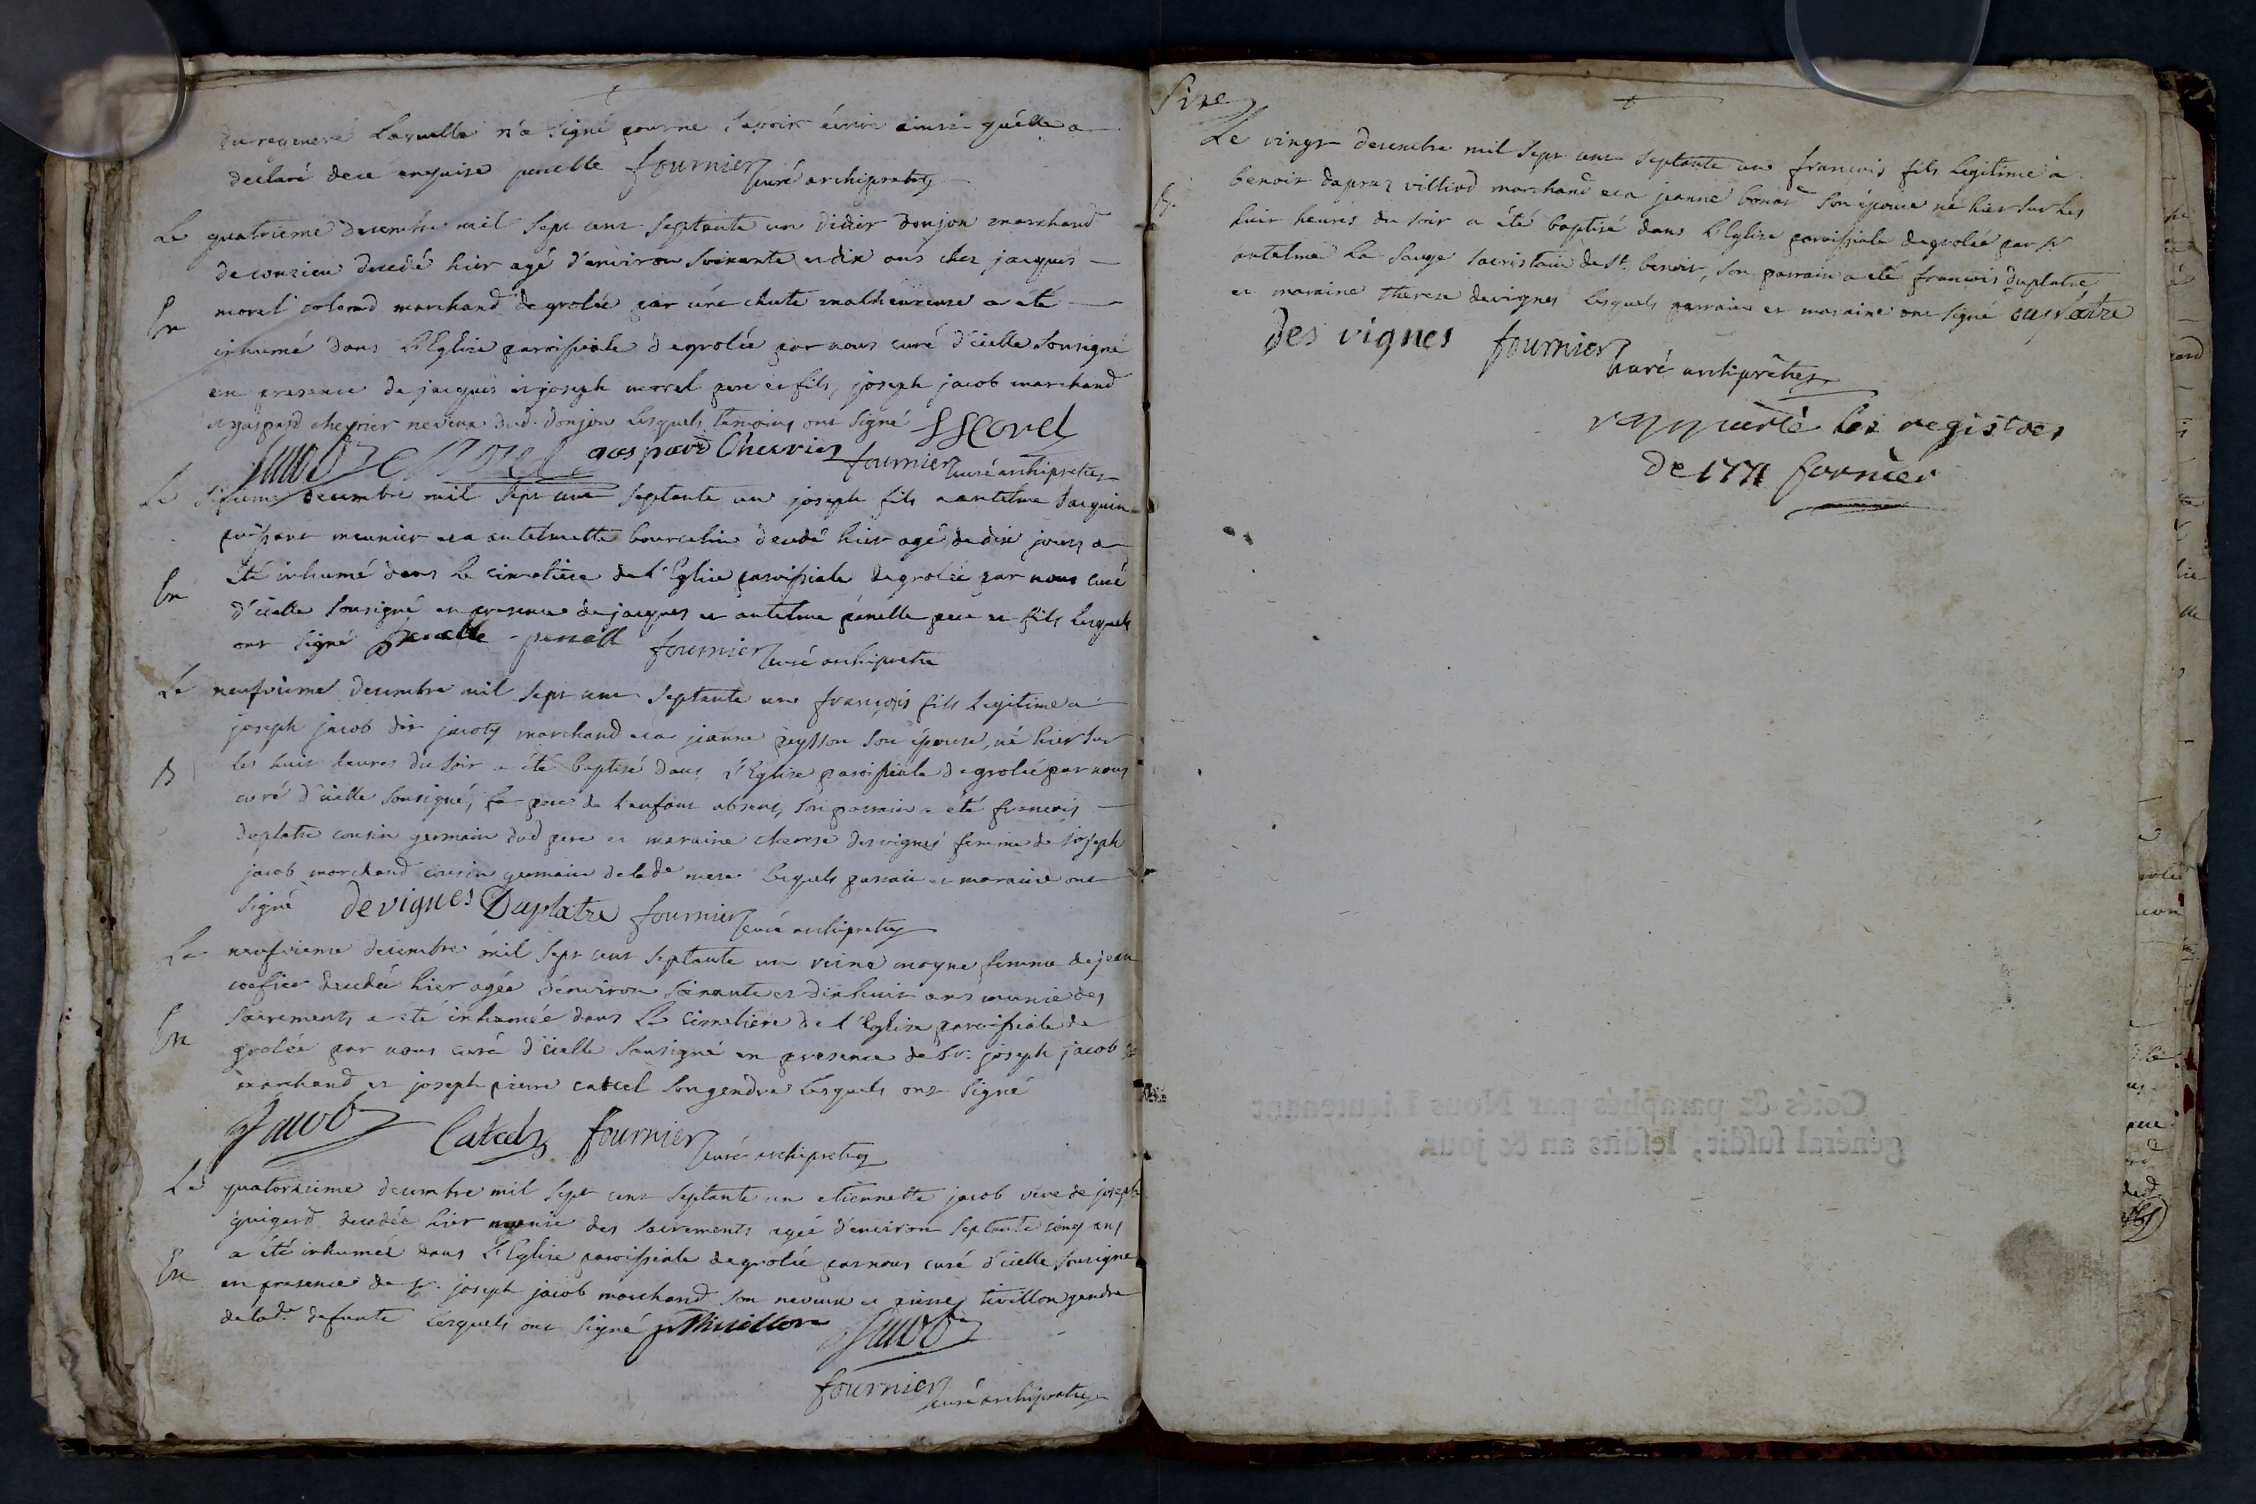 laquelle n'a signé pour ne savoir écrire ainsi qu'elle a
déclaré de ce enquise penelle fournier curé archipretre
Le quatrieme decembre mil sept cent septante un didier donjon marchand
de conzieu decedé hier agé d'environ soixante et dix ans chez jacques
En morel colomd marchand de grolée par une chute malheureuse a été
inhumé dans l'Eglise paroissiale de grolée par nous curé d'icelle sousigné
en presence de jacques et joseph morel pere et fils, joseph jacob marchand
et gaspard chevrier neveux dud. donjon lesquels temoins ont signé Morel
Jacob Morel gaspard Chevrier fournier curé archipretre
Le sixieme decembre mil sept cent septante un joseph fils a antelme
meunier et a antelmette bourcelin decedé hier agé de dix jours a
En été inhumé dans le cimetiere de l'Eglise paroissiale de grolée par nous curé
d'icelle sousigné en presence de jacques et antelme penelle pere et fils lesquels
ont signé penelle penelle fournier curé archipretre
Le neufvieme decembre mil sept cent septante un françois fils legitime a
joseph jacob dit jacoty marchand et a jeanne peysson son épouse, né hier sur
B les huit heures du soir a été baptisé dans l'Eglise paroissiale de grolée par nous
curé d'icelle sousigné, le pere de l'enfant absent, son parrain a été francois
duplatre cousin germain dud pere et maraine therese desvignes femme de joseph
jacob marchand cousin germain de lade mere lesquels parrain et maraine ont
signé devignes Duplatre fournier curé archipretre
Le neufvieme decembre mil sept cent septante un reine moyne femme de jean
decedée hier agée d'environ soixante et dix huit ans munie des
sacrements a été inhumée dans le cimetiere de l'Eglise paroissiale de
En grolée par nous curé d'icelle sousigné en presence de Sr. joseph jacob
marchand et joseph pierre catcel son gendre lesquels ont signé
Jacob Catcel fournier curé archipretre
Le quatorzieme decembre mil sept cent septante un etiennette jacob veve de joseph
guigard decedée hier munie des sacrements agée d'environ septante cinq ans
a été inhumée dans l'Eglise paroissiale de grolée par nous curé d'icelle sousigné
En en presence de Sr. joseph jacob marchand son neveux et pierre tivillon gendre
de lade. defunte lesquels ont signé Jacob
fournier curé archipretre
Le vingt decembre mil sept cent septante un francois fils legitime à
benoit marchand et a jeanne bonar son épouse né hier sur les
B. huit heures du soir a été baptisé dans l'Eglise paroissiale de grolée par Sr
antelme La sauge sacristain de St. benoit, son parrain a été francois duplatre
et maraine therese devignes lesquels parrain et maraine ont signé duplatre
des vignes fournier
curé archiprêtre
les registres
de 1771 fornier
Cotés & paraphés par Nous Lieutenant
général susdit, lesdits an & jour